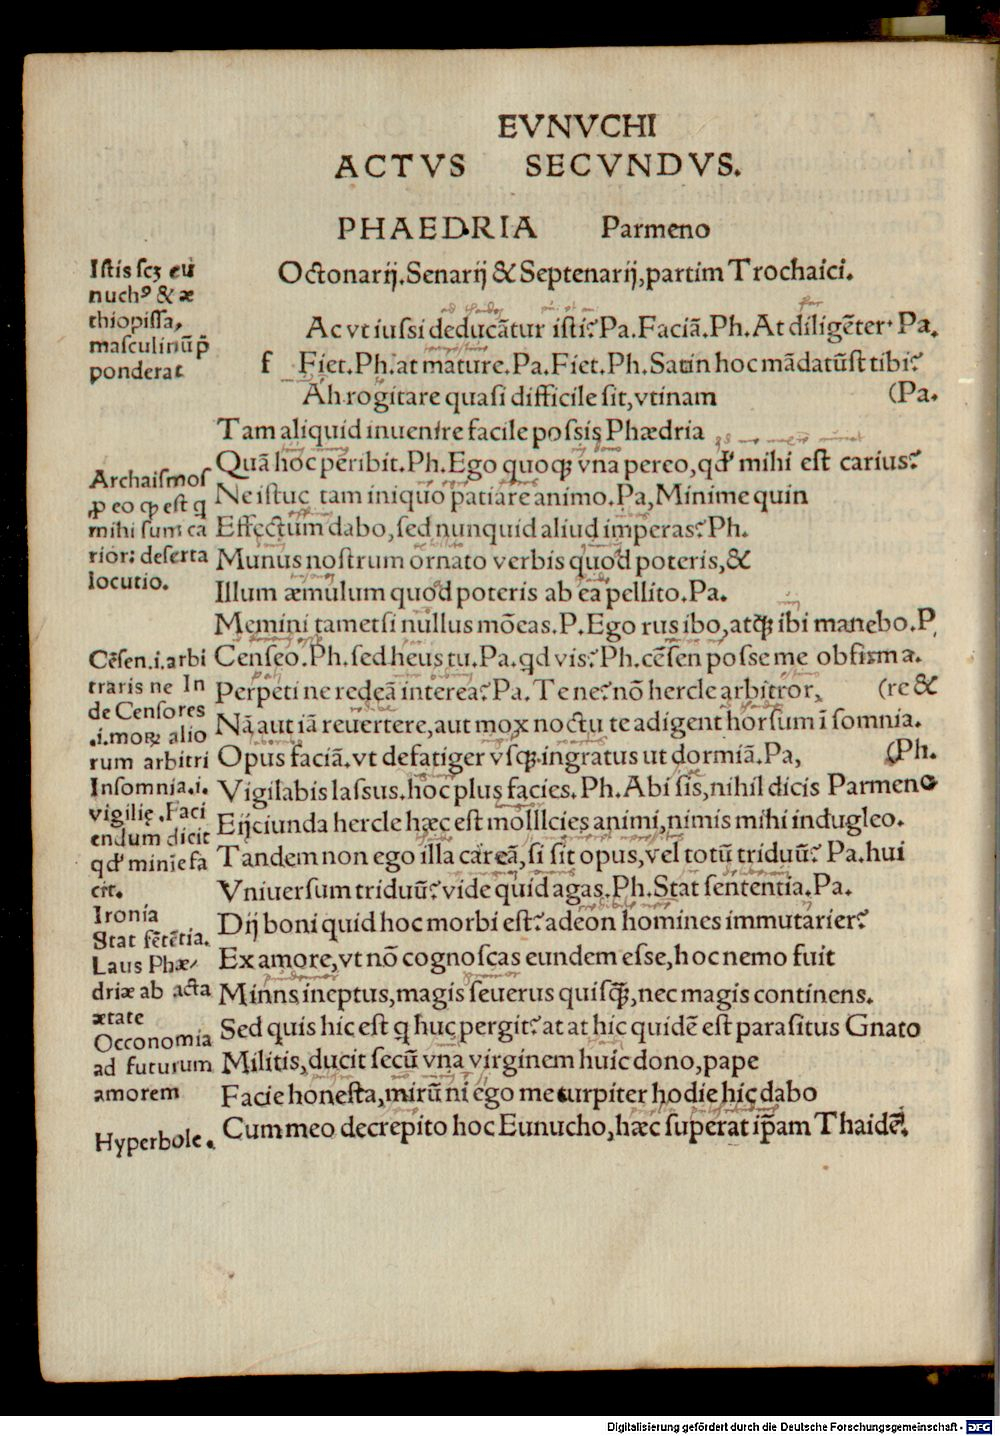 EVNVCHI
ACTVS SECVNDVS.
PHAEDRIA Parmeno
Octonarij.Senarij & Septenarij,partim Trochaici.
Ac vt iussi deducãtur isti? Pa. Faciã. Ph. At diligẽter· Pa.
f Fiet. Ph. at mature. Pa. Fiet. Ph. Satin hoc mãdatũst tibi?
Ah rogitare quasi difficile sit, vtinam (Pa.
Tam aliquid inuenire facile possis Phædria
Quã hoc peribit. Ph. Ego quoqꝫ vna pereo, qđ mihi est carius?
Ne istuc tam iniquo patiare animo. Pa, Minime quin
Effectum dabo, sed nunquid aliud imperas? Ph.
Munus nostrum ornato verbis quod poteris, &
Illum æmulum quod poteris ab ea pellito. Pa.
Memini tametsi nullus mõeas. P. Ego rus ibo, atqꝫ ibi manebo. P,
Censeo. Ph. sed heus tu. Pa. qd vis? Ph. cẽsen posse me obfirma.
Perpeti ne redeã interea? Pa. Te ne? nõ hercle arbitror, (re &
Nã aut iã reuertere, aut mox noctu te adigent horsum ĩ somnia.
Opus faciã. vt defatiger vsqꝫ. ingratus ut dormiã. Pa, (Ph.
Vigilabis lassus. hoc plus facies. Ph. Abi sis, nihil dicis Parmeno
Eijciunda hercle hæc est mollicies animi, nimis mihi indugleo.
Tandem non ego illa careã, si sit opus, vel totũ triduũ? Pa. hui
Vniuersum triduũ? vide quid agas. Ph. Stat sententia. Pa.
Dij boni quid hoc morbi est? adeon homines immutarier?
Ex amore, vt nõ cognoscas eundem esse, hoc nemo fuit
Minns ineptus, magis seuerus quisqꝫ, nec magis continens.
Sed quis hic est q huc pergit? at at hic quidẽ est parasitus Gnato
Militis, ducit secũ vna virginem huic dono, pape
Facie honesta, mirũ ni ego me turpiter hodie hic dabo
Cum meo decrepito hoc Eunucho, hæc superat ip̃am Thaidẽ.
Istis scꝫ eu
nuchꝰ & æ
thiopissa,
masculinũ p̃
ponderat
Archaismos
ꝓ eo qꝫ est q
mihi sum ca
rior: deserta
locutio.
Cẽsen.i.arbi
traris ne In
de Censores
.i.moꝝ alio
rum arbitri
Insomnia.i.
vigilię .Faci
endum dicit
qđ minĩe fa
cit.
Ironia
Stat sẽtẽtia.
Laus Phæ/
driæ ab acta
ætate
Occonomia
ad futurum
amorem
Hyperbole.
Digitalisierung gefördert durch die Deutsche Forschungsgemeinschaft - DFG